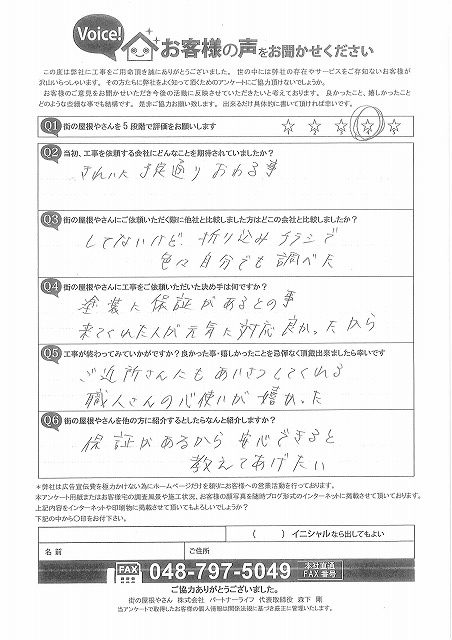 Voice!
お客様の声をお聞かせください
この度は弊社に工事をご用命頂き誠にありがとうございました。世の中には弊社の存在やサービスをご存知ないお客様が
沢山いらっしゃいます。その方たちに弊社をよく知って頂くためのアンケートにご協力頂けないでしょうか。
お客様のご意見をお聞かせいただき今後の活動に反映させていただきたいと考えております。良かったこと、嬉しかったこと
どのような些細な事でも結構です。是非ご協力お願い致します。出来るだけ具体的に書いて頂ければ幸いです。
Q1 街の屋根やさんを5段階で評価をお願いします ☆ ☆ ☆ ☆ ☆
Q2 当初、工事を依頼する会社にどんなことを期待されていましたか?
きれいに予定通りおわる事
Q3 街の屋根やさんにご依頼いただく際に他社と比較しました方はどこの会社と比較しましたか?
してないけど 折り込みチラシで
色々自分でも調べた
Q4 街の屋根やさんに工事をご依頼いただいた決め手は何ですか?
塗装に保証があるとの事
来てくれた人が元気に対応良かったから
Q5 工事が終わってみていかがですか?良かった事・嬉しかったことを忌憚なく頂戴出来ましたら幸いです
ご近所さんにもあいさつしてくれる
職人さんの心使いが嬉かった
Q6 街の屋根やさんを他の方に紹介するとしたらなんと紹介しますか?
保証があるから安心できると
教えてあげたい
*弊社は広告宣伝費を極力かけない為にホームページだけを頼りにお客様への営業活動を行っております。
本アンケート用紙またはお客様宅の調査風景や施工状況、お客様の顔写真を随時ブログ形式のインターネットに掲載させて頂いております。
上記内容をインターネットや印刷物に掲載させて頂いてもよろしいでしょうか?
下記の中から○印をお付下さい。
( )イニシャルなら出してもよい
名前 ご住所
FAX 048-797-5049 本社直通 FAX番号
ご協力ありがとうございました。
街の屋根やさん 株式会社 パートナーライフ 代表取締役 森下 剛
当アンケートで取得したお客様の個人情報は関係法規に基づき厳正に管理いたします。